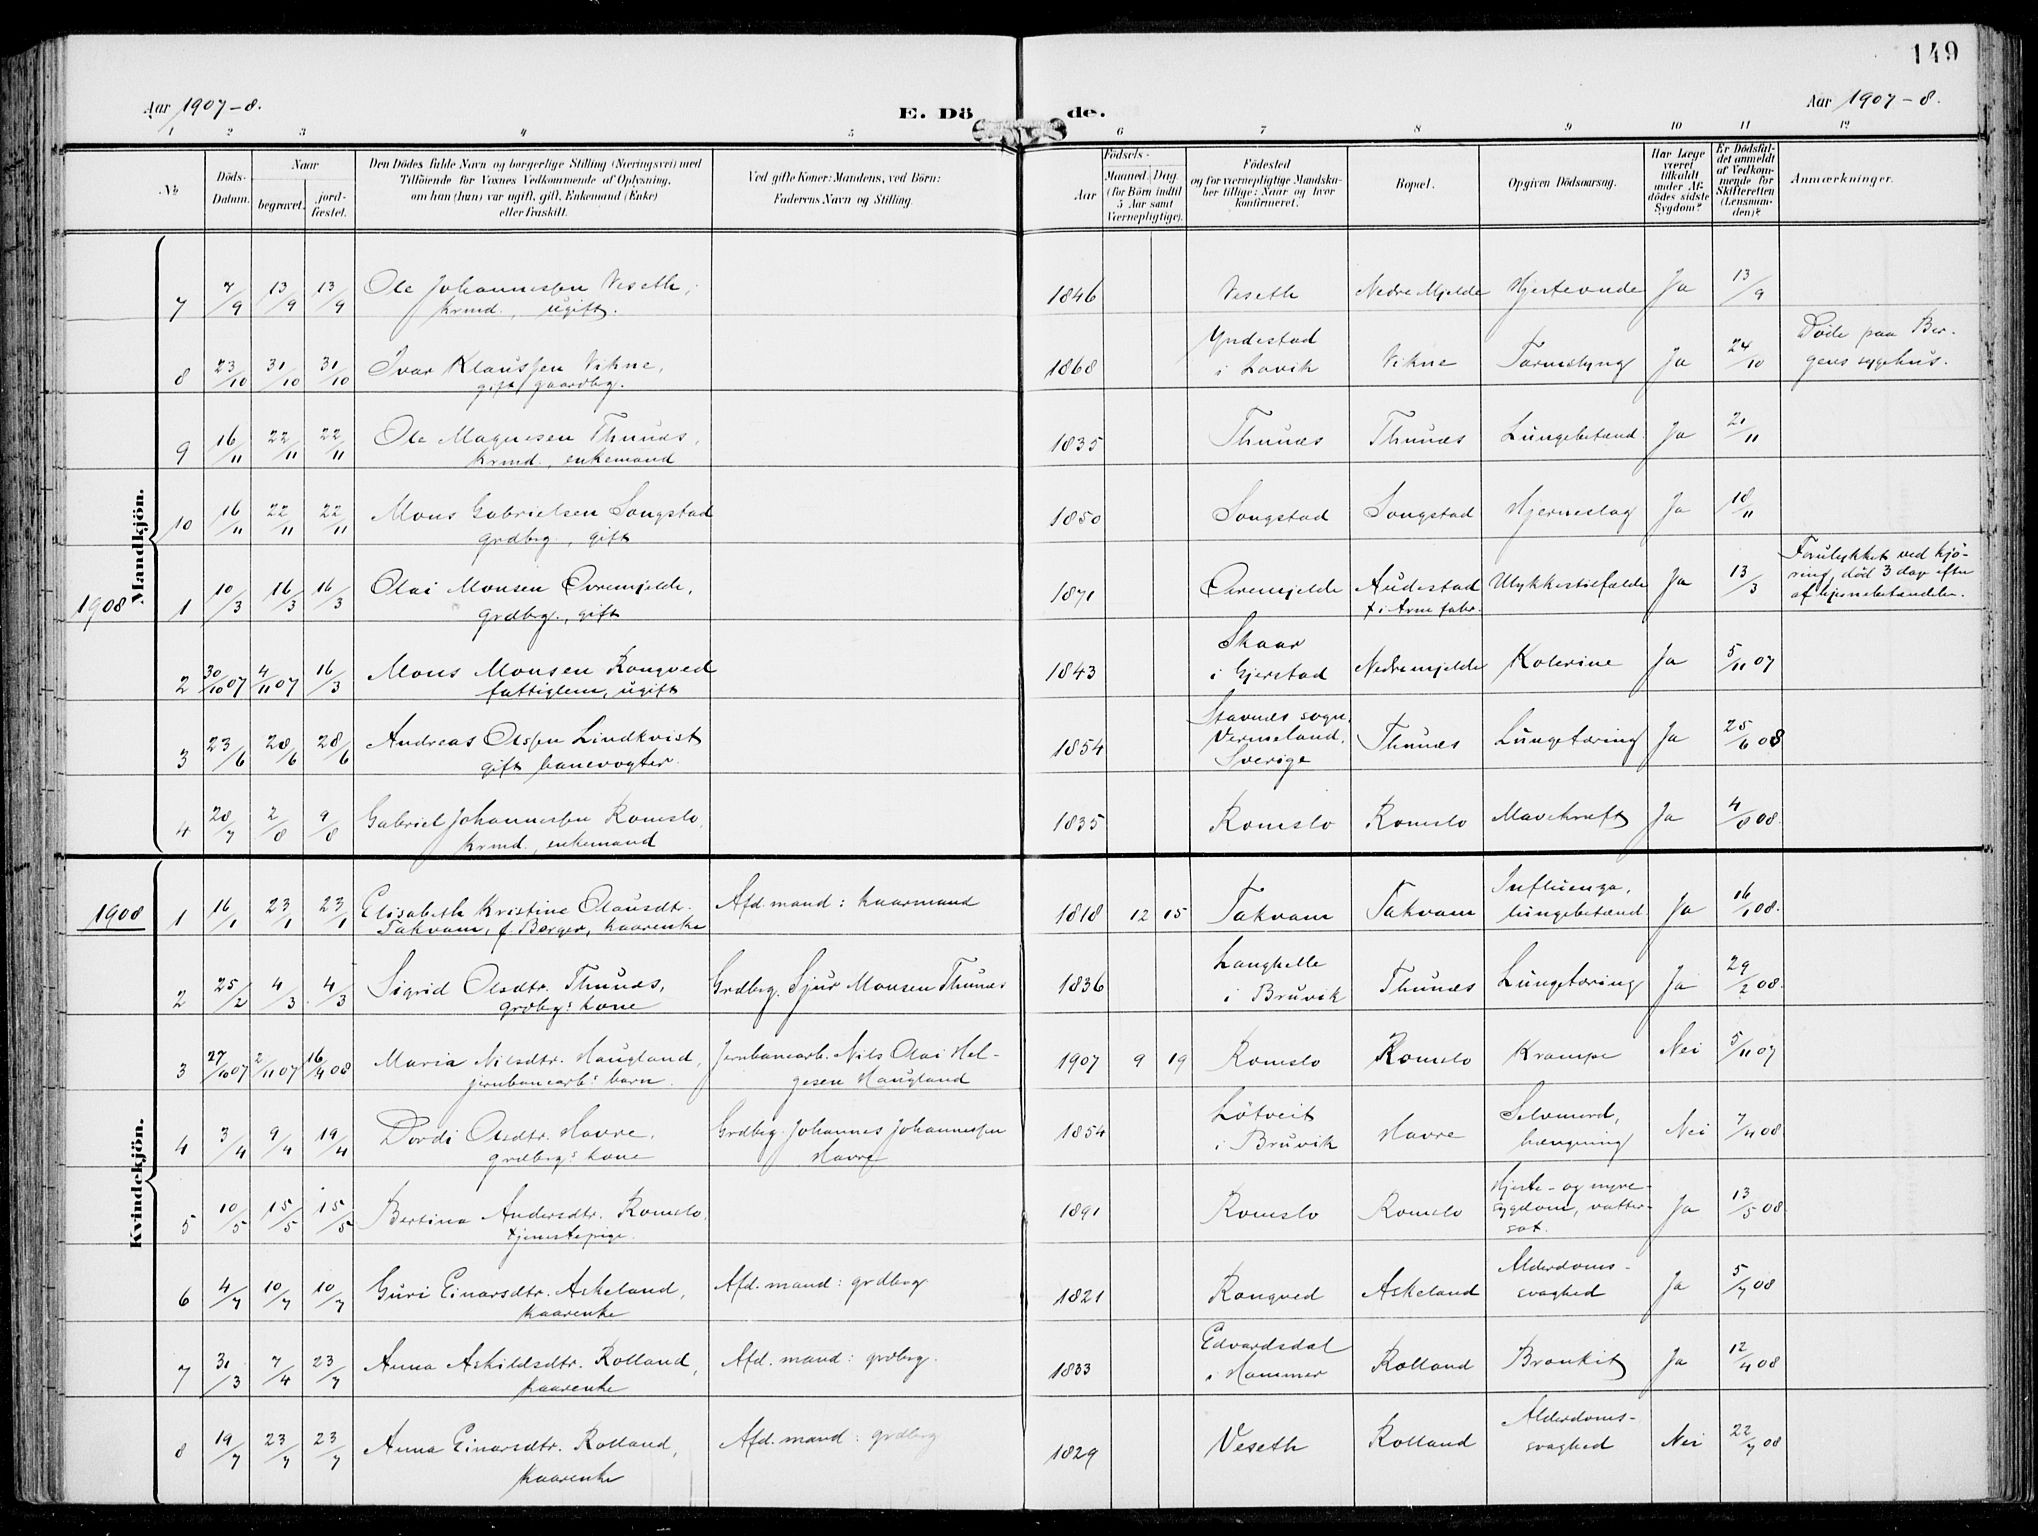 149
Aar 1907-8.
E. Döde.
Aar 1907-8.
1 2 3 4 5 6 7 8 9 10 11 12
No.
Döds-Datum.
Naar
begravet.
jordfæstet.
Den Dödes fulde Navn og borgerlige Stilling (Næringsvei) med
Tilföiende for Voxnes Vedkommende af Oplysning,
om han (hun) var ugift, gift, Enkemand (Enke)
eller fraskilt.
Ved gifte Koner: Mandens, ved Börn:
Faderens Navn og Stilling.
Födsels-
Aar
Maaned. Dag.
(for Börn indtil
5 Aar samt
Værnepligtige).
Födested
og for værnepligtige Mandskaber tillige: Naar og hvor
konfirmeret.
Bopæl.
Opgiven Dödsaarsag.
Har Læge
været
tilkaldt
under Afdödes sidste
Sygdom?
Er Dödsfaldet anmeldt
af Vedkommende for
Skifteretten
(Lensmanden)?
Anmærkninger.
Mandkjön.
7 7/9 13/9 13/9 Ole Johannessen Veseth, 1846 Veseth Nedre Mjelde Hjerteonde Ja 13/9
krmd., ugift.
8 23/10 31/10 31/10 Ivar Klaussen Vikne, 1868 Yndestad i Lavik Vikne Tarmslyng Ja 24/10 Döde paa Ber-
gift, gaardbg. gens sygehus.
9 16/11 22/11 22/11 Ole Magnesen Thunæs, 1835 Thunæs Thunæs Lungebetænd. Ja 21/11
krmd., enkemand
10 16/11 22/11 22/11 Mons Gabrielsen Songstad 1850 Songstad Songstad Hjerneslag Ja 18/11
grdbrg., gift
1908 1 10/3 16/3 16/3 Olai Monsen Övremjelde, 1871 Övremjelde Audestad Ulykkestilfælde Ja 13/3 Forulykket ved kjö-
grdbrg., gift + i Arne fabr. ring, död 3 dage efter
2 30/10 07 4/11 07 16/3 Mons Monsen Rongved 1843 Skaar i Gjerstad Nedremjelde Kolerine Ja 5/11 07
fattiglem, ugift
3 23/6 28/6 28/6 Andreas Olssen Lindkvist 1854 Stavnæs sogn, Vermeland, Sverige Thunæs Lungetæring Ja 25/6 08
gift banevogter.
4 28/7 2/8 9/8 Gabriel Johannessen Romslo, 1835 Romslo Romslo Mavekræft Ja 4/8 08.
krmd., enkemand
Kvindekjön.
1908 1 16/1 23/1 23/1 Elisabeth Kristine Olausdtr. Afd. mand: kaarmand 1818 12 15 Takvam Takvam Influenza, lungebetænd. Ja 16/1 08.
Takvam, f. Berger, kaarenke
2 25/2 4/3 4/3 Sigrid Olsdtr. Thunæs, Grdbrg. Sjur Monsen Thunæs 1836 Langhelle i Bruvik Thunæs Lungetæring Ja 29/2 08.
grdbrg.s kone
3 27/10 07 2/11 07 16/4 08 Maria Nilsdtr. Haugland, Jernbanearb. Nils Olai Hel- 1907 9 19 Romslo Romslo Krampe Nei 5/11 07
jernbanearb.s barn. gesen Haugland
4 3/4 9/4 19/4 Dordi Olsdtr. Havre, Grdbrg. Johannes Johannessen 1854 Lötveit i Bruvik Havre Selvmord, hængning Nei 7/4 08.
grdbrg.s kone Havre
5 10/5 15/5 15/5 Bertina Andersdtr. Romslo, 1891 Romslo Romslo Hjerte- og nyre-sygdom, vatter-sot. Ja 13/5 08.
tjenestepige.
6 4/7 10/7 10/7 Guri Einarsdtr. Askeland, Afd. mand: grdbrg 1821 Rongved Askeland Alderdoms-svaghed Ja 5/7 08
kaarenke
7 31/3 7/4 23/7 Anna Askildsdtr. Rolland, Afd. mand: grdbrg. 1833 Edvardsdal i Hammer Rolland Bronkit Ja 12/4 08
kaarenke
8 19/7 23/7 23/7 Anna Einarsdtr. Rolland, Afd. mand: grdbrg 1829 Veseth Rolland Alderdoms-svaghed Nei 22/7 08
kaarenke